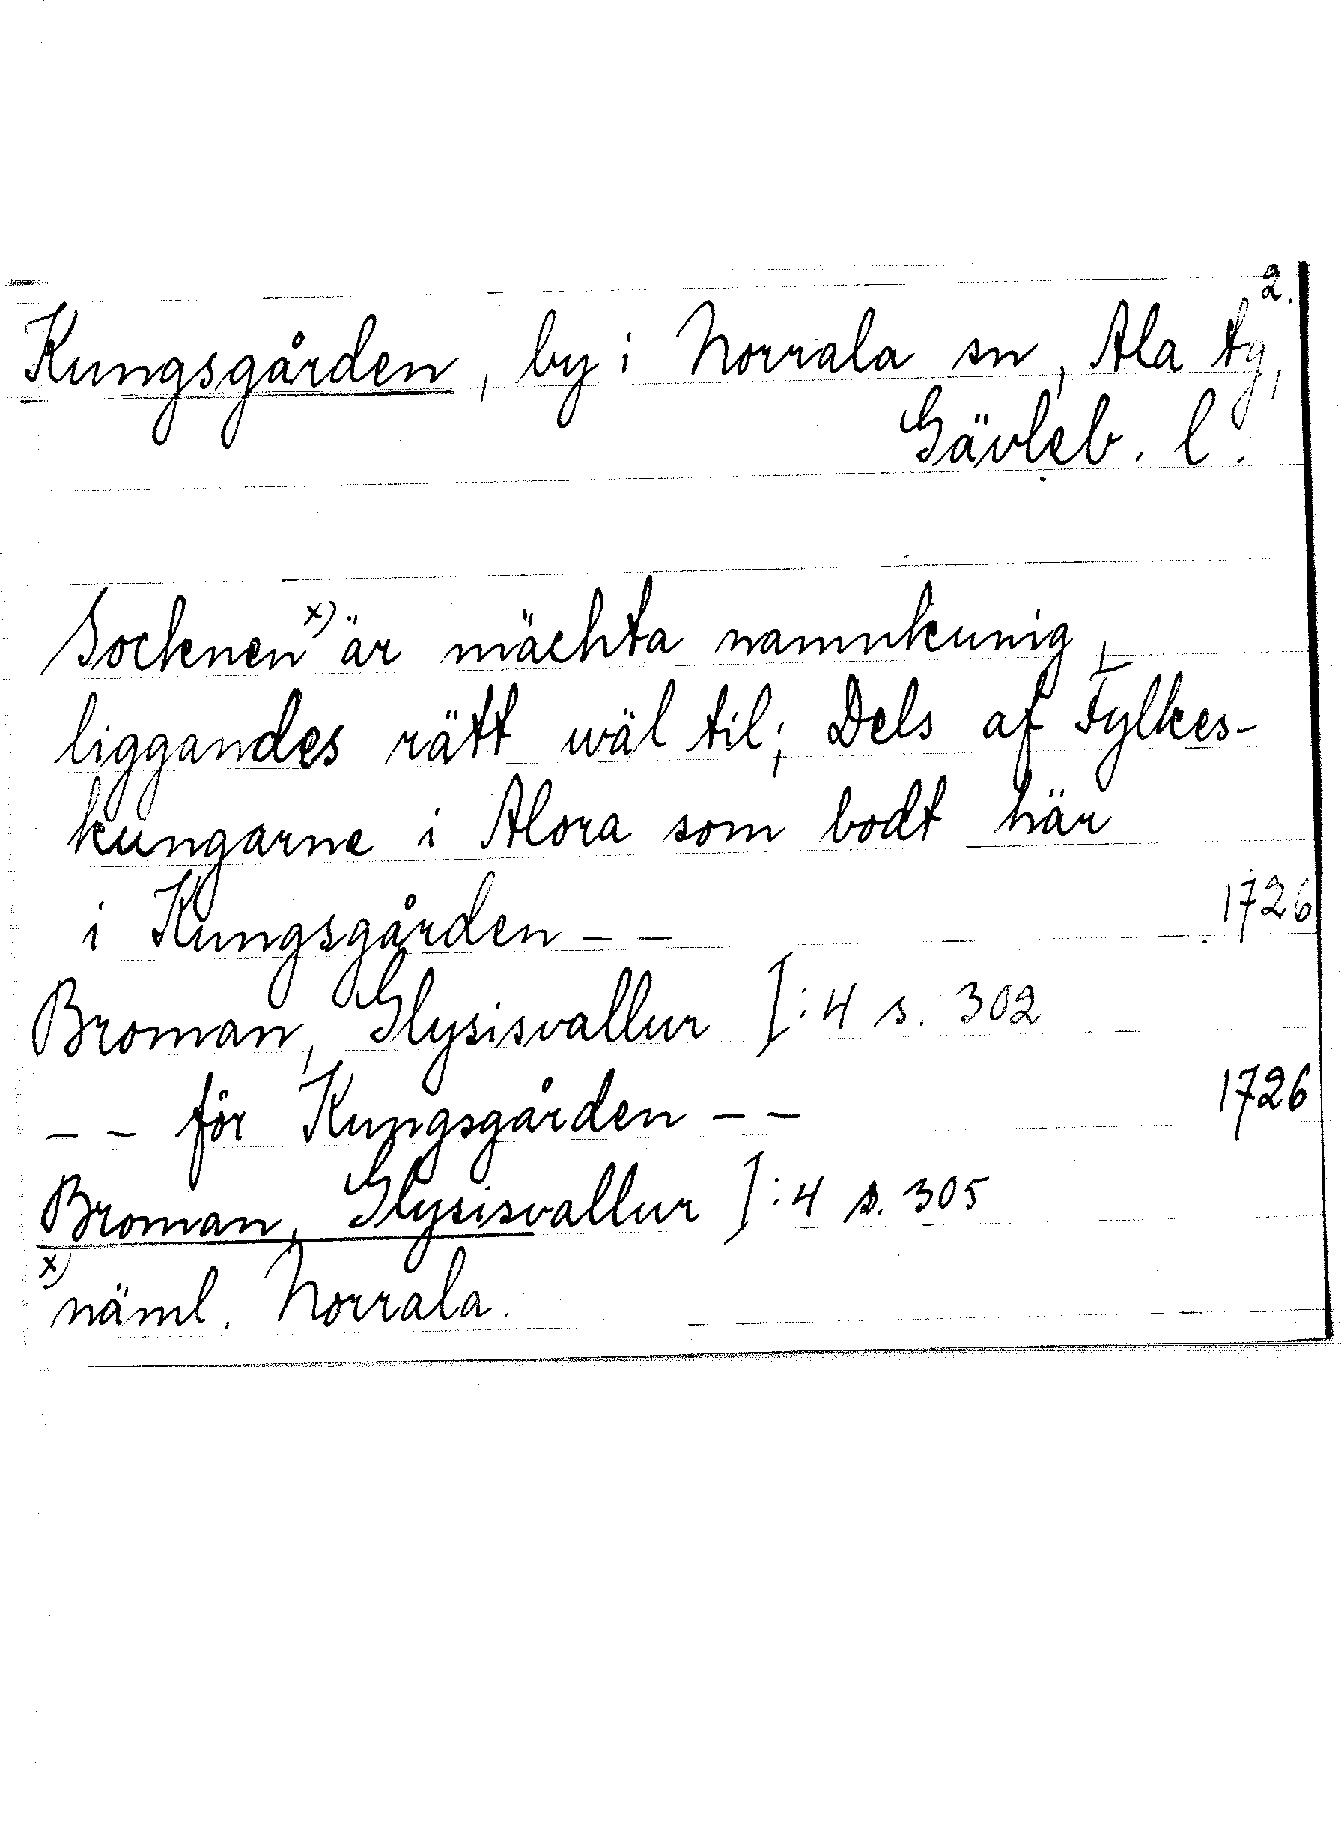 2.
Kungsgården, by i Norrala sn, Ala tg,
Gävleb. l.
Socknen x) är mächta namnkunig,
liggandes rätt wäl til; Dels af Fylkes-
kungarne i Alora som bodt här
i Kungsgården – – 1726
Broman, Glysisvallur I:4 s. 302
– – för Kungsgården – – 1726
Broman, Glysisvallur I:4 s. 305
x) näml. Norrala.